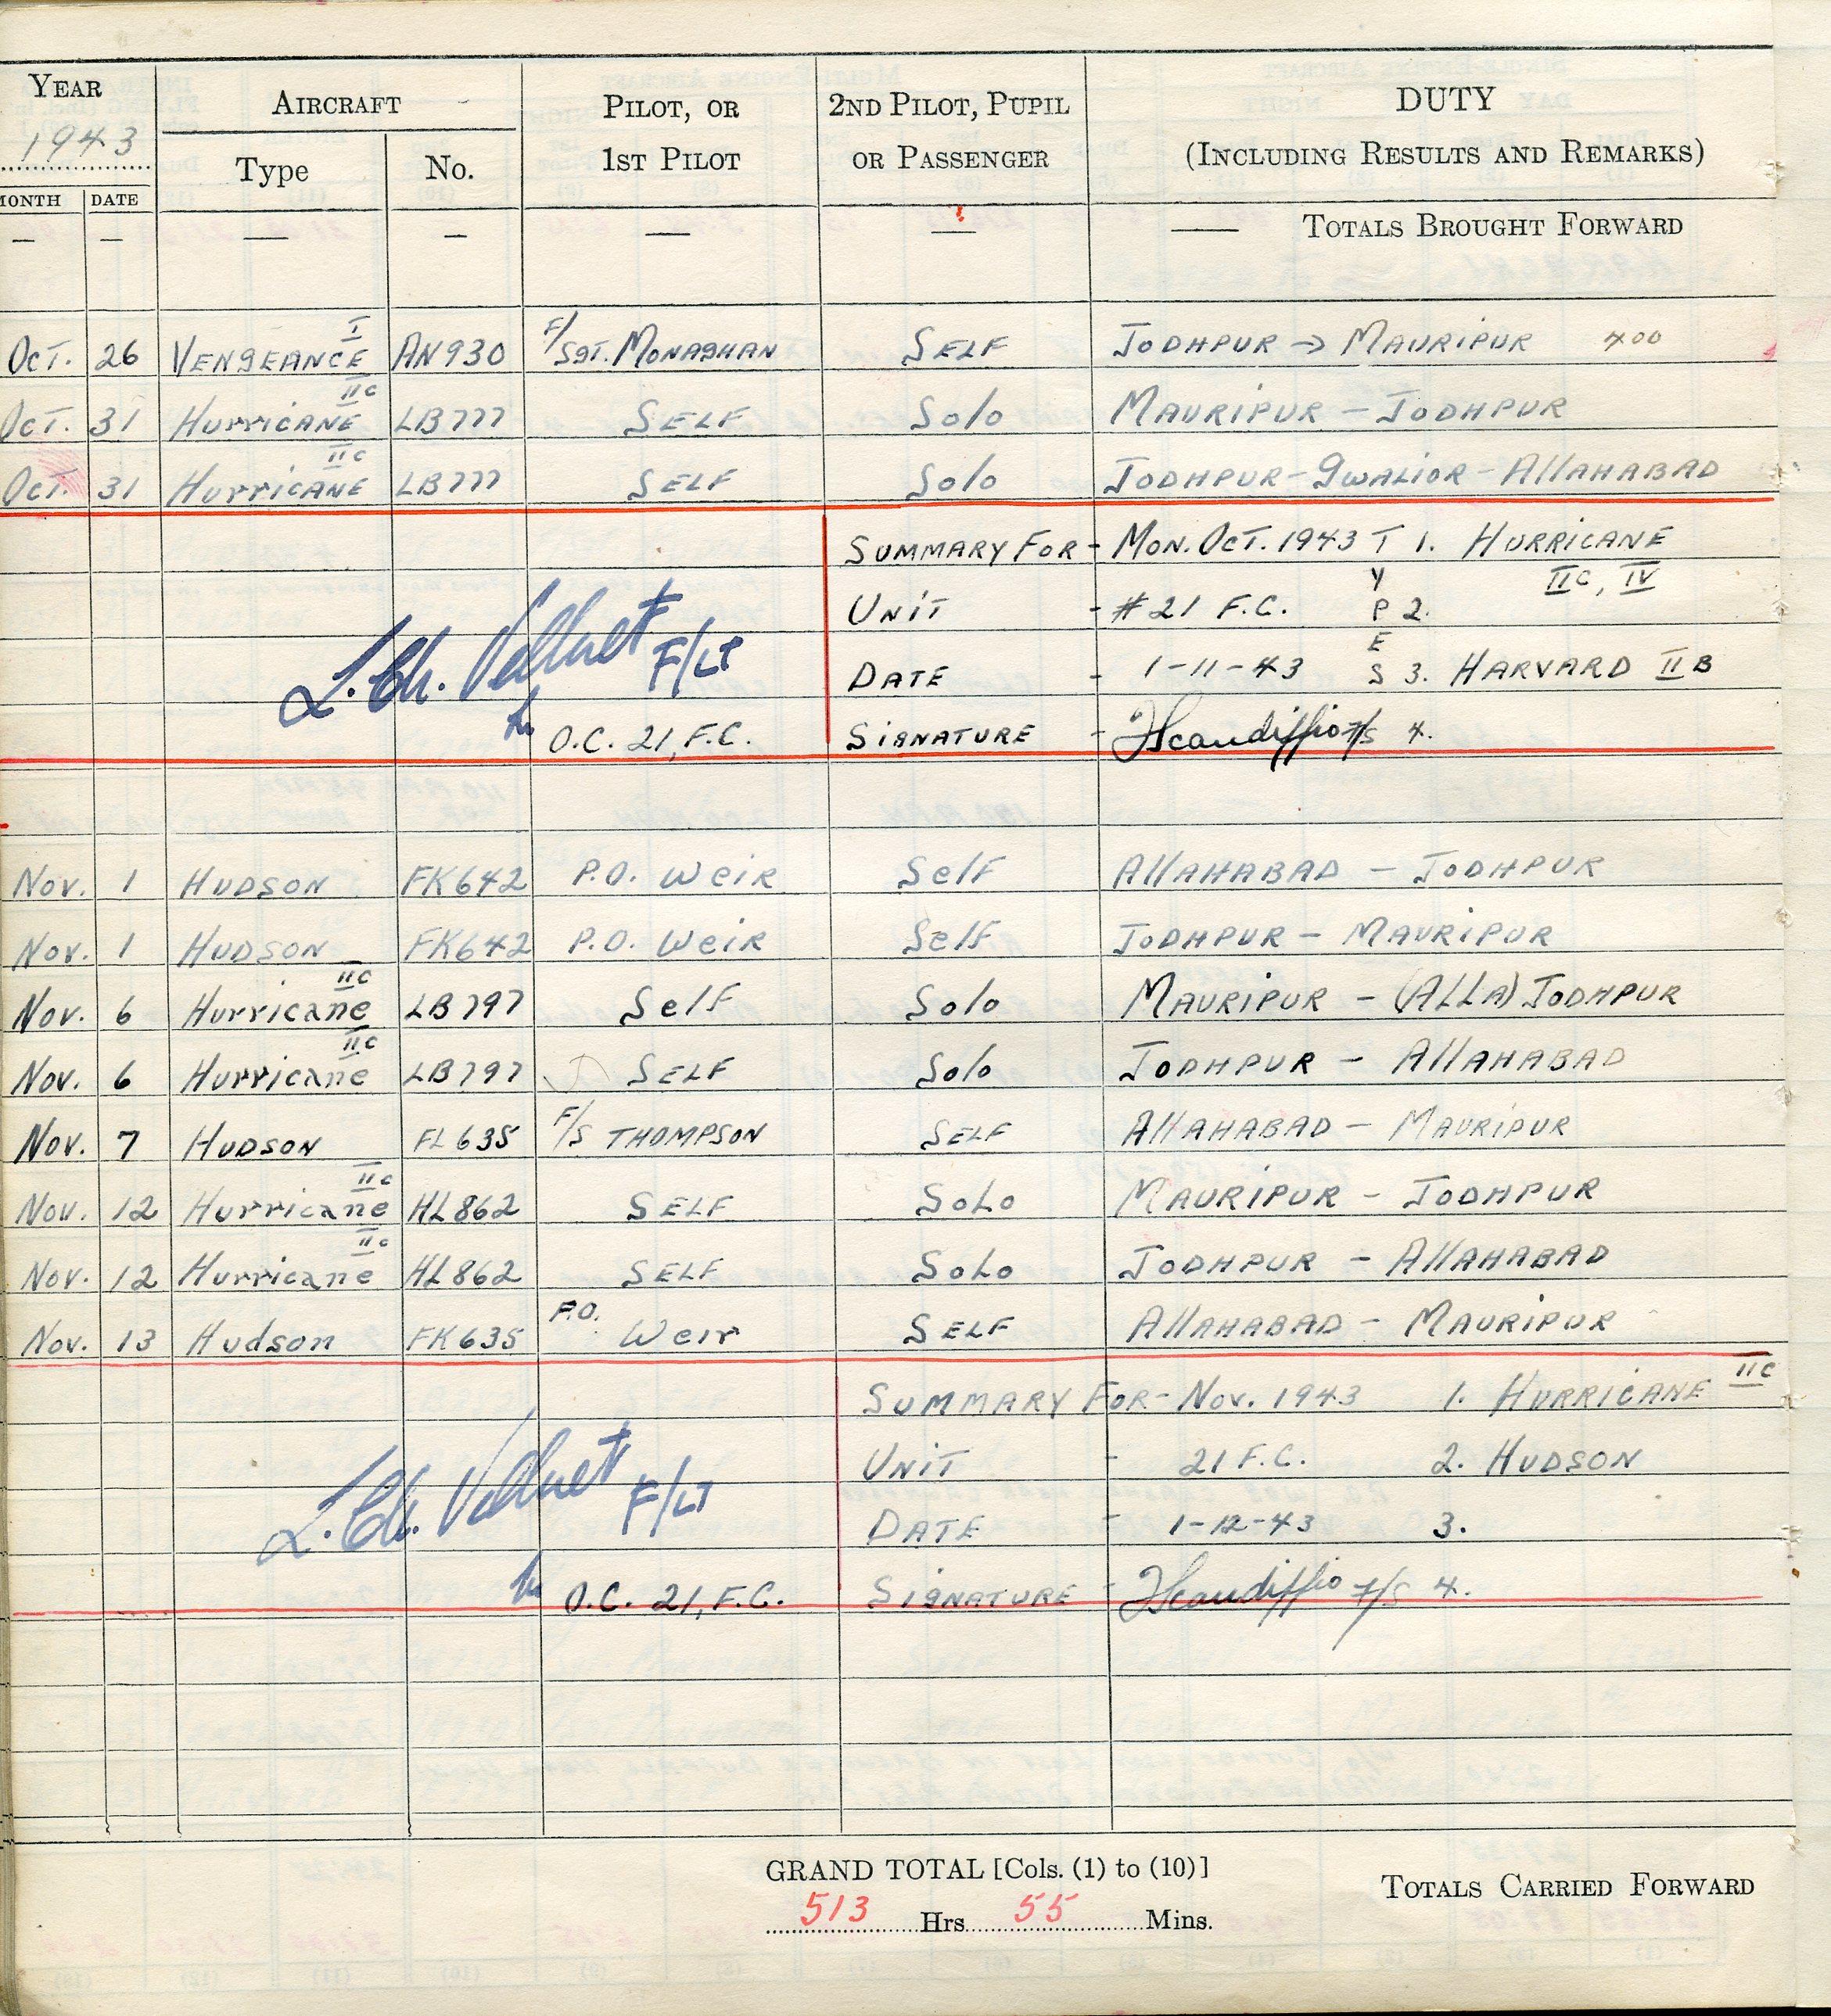 YEAR AIRCRAFT PILOT, OR 2ND PILOT, PUPIL DUTY
1943 Type No. 1ST PILOT OR PASSENGER (INCLUDING RESULTS AND REMARKS)
MONTH DATE
— — — — — — — TOTALS BROUGHT FORWARD
OCT. 26 VENGEANCE I AN930 F/SGT. MONAGHAN SELF JODHPUR → MAURIPUR 400
OCT. 31 HURRICANE IIC LB777 SELF SOLO MAURIPUR – JODHPUR
OCT. 31 HURRICANE IIC LB777 SELF SOLO JODHPUR – GWALIOR – ALLAHABAD
SUMMARY FOR – MON. OCT. 1943 T 1. HURRICANE
Y IIC, IV
UNIT - #21 F.C. P 2.
E
DATE - 1-11-43 S 3. HARVARD IIB
F/LT
O.C. 21, F.C. SIGNATURE - JScandiffio F/S 4.
NOV. 1 HUDSON FK642 P.O. WEIR SELF ALLAHABAD – JODHPUR
NOV. 1 HUDSON FK642 P.O. WEIR SELF JODHPUR – MAURIPUR
NOV. 6 HURRICANE IIC LB797 SELF SOLO MAURIPUR – (ALLA) JODHPUR
NOV. 6 HURRICANE IIC LB797 SELF SOLO JODHPUR – ALLAHABAD
NOV. 7 HUDSON FL635 F/S THOMPSON SELF ALLAHABAD – MAURIPUR
NOV. 12 HURRICANE IIC HL862 SELF SOLO MAURIPUR – JODHPUR
NOV. 12 HURRICANE IIC HL862 SELF SOLO JODHPUR – ALLAHABAD
NOV. 13 Hudson FK635 P.O. Weir SELF ALLAHABAD – MAURIPUR
SUMMARY FOR – NOV. 1943 1. HURRICANE IIC
UNIT - 21 F.C. 2. HUDSON
F/LT DATE - 1-12-43 3.
O.C. 21, F.C. SIGNATURE - JScandiffio F/S 4.
GRAND TOTAL [Cols. (1) to (10)]
513 Hrs. 55 Mins. TOTALS CARRIED FORWARD